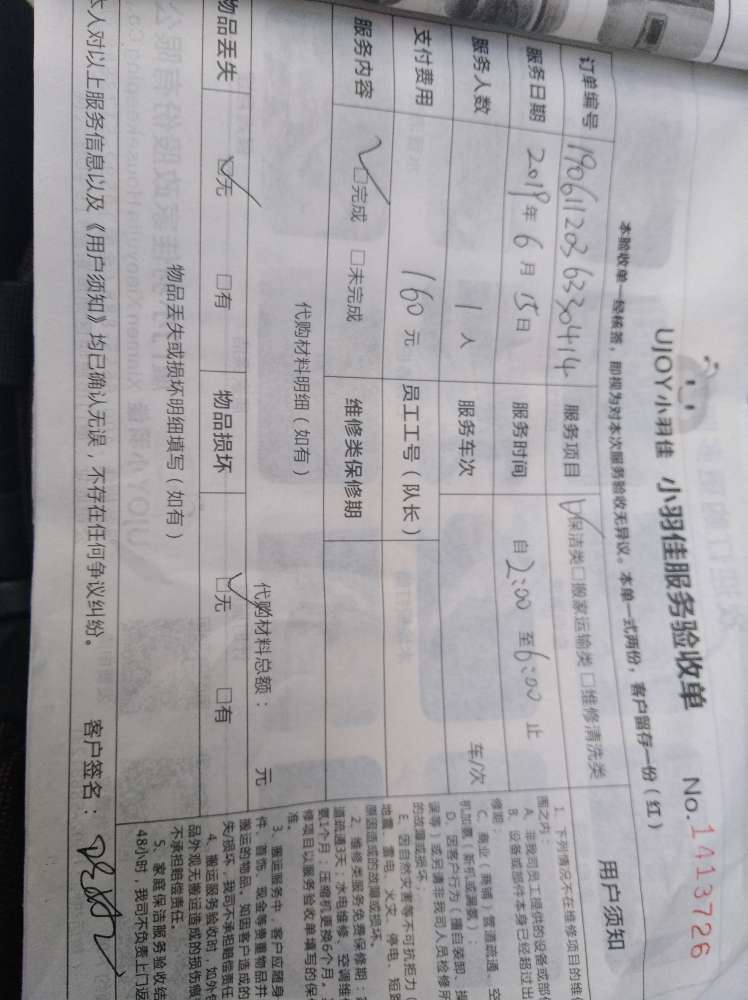 UJOY小羽佳 小羽佳服务验收单 No.1413726
本验收单一经核签，即视为对本次服务验收无异议。本单一式两份，客户留存一份（红）
订单编号 1906112036330414 服务项目 ☑保洁类□搬家运输类□维修清洗类
服务日期 2019年 6 月 15日 服务时间 自2:00 至6:00 止
服务人数 1 人 服务车次 车/次
支付费用 160 元 员工工号（队长）
服务内容 ☑完成 □未完成 维修类保修期
代购材料明细（如有）
代购材料总额： 元
物品丢失 ☑无 □有 物品损坏 ☑无 □有
物品丢失或损坏明细填写（如有）
本人对以上服务信息以及《用户须知》均已确认无误，不存在任何争议纠纷。 客户签名：
用户须知
1、下列情况不在维修项目的维
围之内：
A、非我司员工提供的设备或部
B、设备或部件本身已经超过出
修期；
C、商业（商铺）管道疏通、空
机加氨（新机或漏氨）；
D、因客户行为（擅自装卸、操
误等）或另请非我司人员检修所
的故障或损坏；
E、因自然灾害等不可抗拒力（
地震、雷电、火灾、停电、短路
原因造成的故障或损坏。
2、维修类服务免费保修期：
道疏通3天；水电维修、空调维
氨1个月；压缩机更换6个月。
修项目以服务验收单填写的保
准。
3、搬运服务中，客户应随身
件、首饰、现金等贵重物品并
搬运的物品，如因客户造成的
失/损坏，我司不承担赔偿责任
4、搬运服务验收时，如外包
品外观无搬运造成的损伤痕
不承担赔偿责任。
5、家庭保洁服务验收
48小时，我司不负责上门返